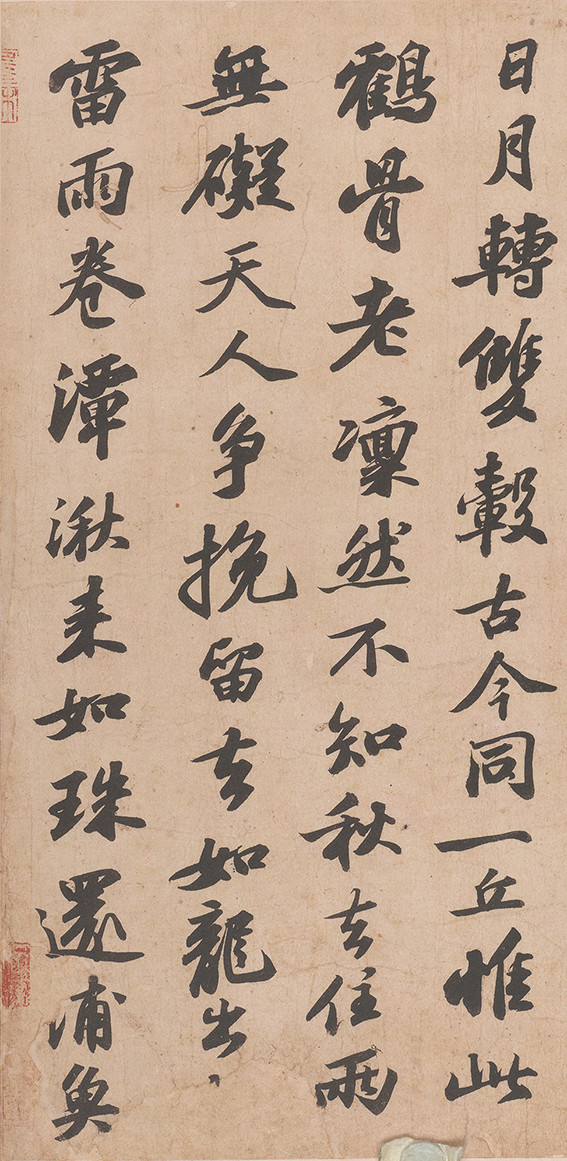 日月轉雙轂古今同一丘惟此
鶴骨老凜然不知秋去住兩
無礙天人爭挽留去如龍出、
雷雨卷潭湫来如珠還浦魚